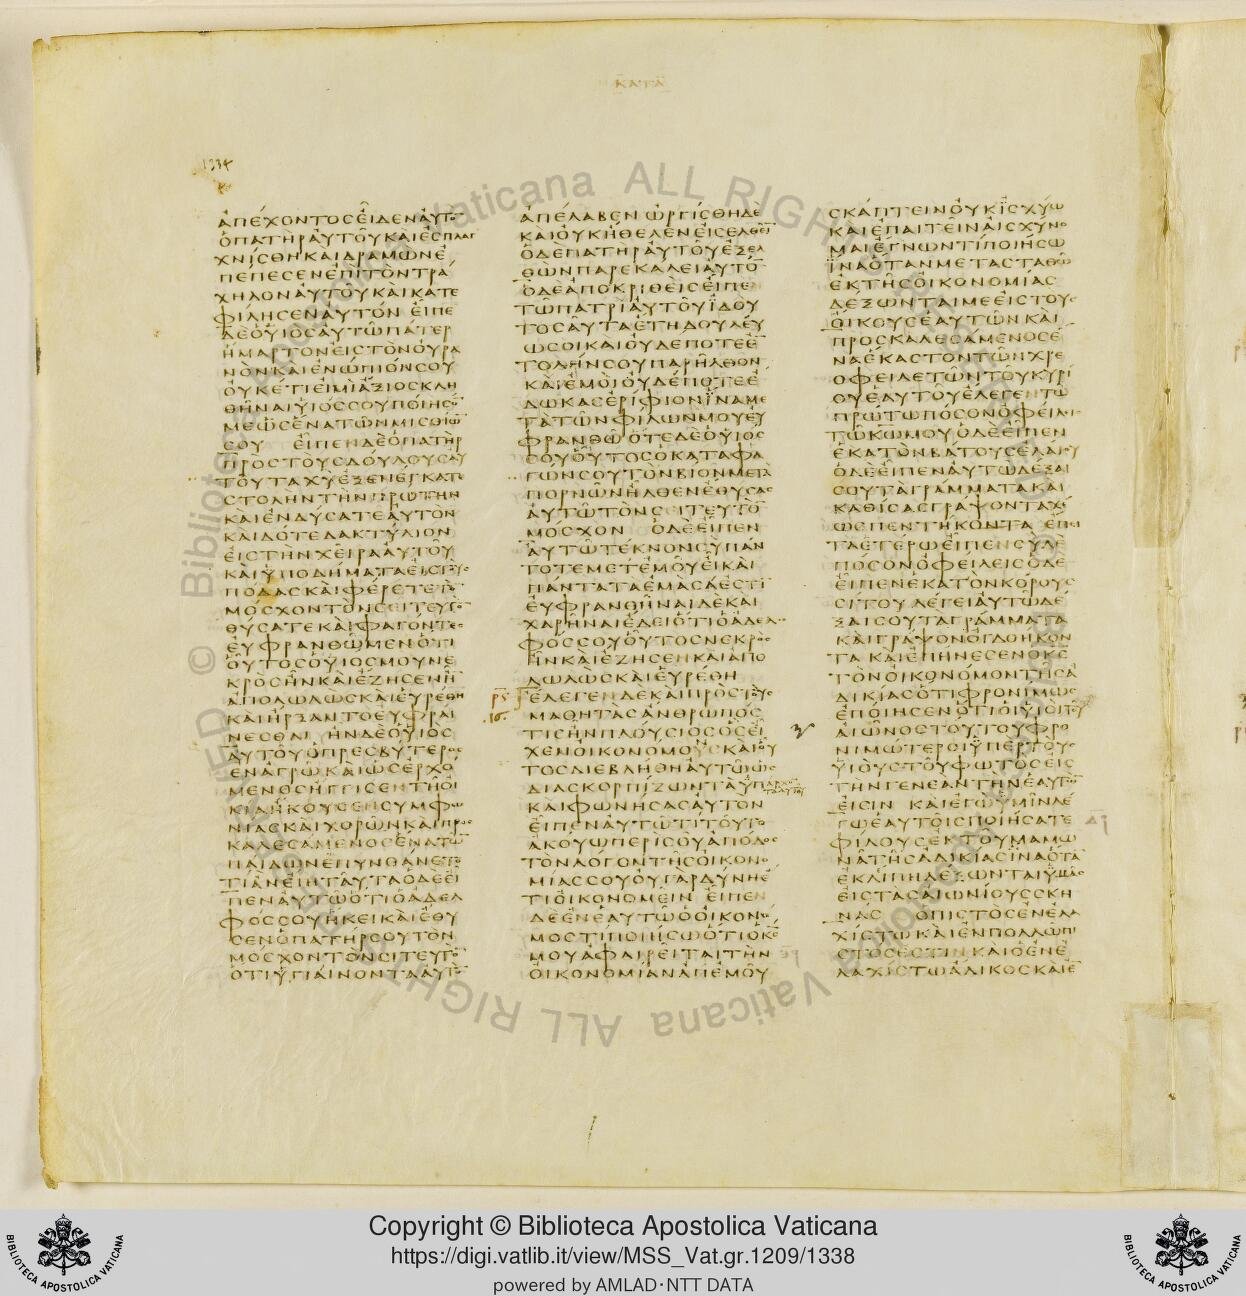 ΚΑΤΑ
1334
ΑΠΕΧΟΝΤΟCΕΙΔΕΝΑΥΤΟ
ΟΠΑΤΗΡΑΥΤΟΥΚΑΙΕCΠΛΑΓ
ΧΝΙCΘΗΚΑΙΔΡΑΜΩΝΕ
ΠΕΠΕCΕΝΕΠΙΤΟΝΤΡΑ
ΧΗΛΟΝΑΥΤΟΥΚΑΙΚΑΤΕ
ΦΙΛΗCΕΝΑΥΤΟΝ ΕΙΠΕ
ΔΕΟΥΙΟCΑΥΤΩΠΑΤΕΡ
ΗΜΑΡΤΟΝΕΙCΤΟΝΟΥΡΑ
ΝΟΝΚΑΙΕΝΩΠΙΟΝCΟΥ
ΟΥΚΕΤΙΕΙΜΙΑΞΙΟCΚΛΗ
ΘΗΝΑΙΥΙΟCCΟΥΠΟΙΗCΟ
ΜΕΩCΕΝΑΤΩΝΜΙCΘΙΩ
CΟΥ ΕΙΠΕΝΔΕΟΠΑΤΗΡ
ΠΡΟCΤΟΥCΔΟΥΛΟΥCΑΥ
ΤΟΥΤΑΧΥΕΞΕΝΕΓΚΑΤΕ
CΤΟΛΗΝΤΗΝΠΡΩΤΗΝ
ΚΑΙΕΝΔΥCΑΤΕΑΥΤΟΝ
ΚΑΙΔΟΤΕΔΑΚΤΥΛΙΟΝ
ΕΙCΤΗΝΧΕΙΡΑΑΥΤΟΥ
ΚΑΙΥΠΟΔΗΜΑΤΑΕΙCΤΟΥC
ΠΟΔΑCΚΑΙΦΕΡΕΤΕΤΟ
ΜΟCΧΟΝΤΟΝCΕΙΤΕΥΤΟ
ΘΥCΑΤΕΚΑΙΦΑΓΟΝΤΕC
ΕΥΦΡΑΝΘΩΜΕΝΟΤΙ
ΟΥΤΟCΟΥΙΟCΜΟΥΝΕ
ΚΡΟCΗΝΚΑΙΕΖΗCΕΝΗ
ΑΠΟΛΩΛΩCΚΑΙΕΥΡΕΘΗ
ΚΑΙΗΡΞΑΝΤΟΕΥΦΡΑΙ
ΝΕCΘΑΙ ΗΝΔΕΟΥΙΟC
ΑΥΤΟΥΟΠΡΕCΒΥΤΕΡΟC
ΕΝΑΓΡΩΚΑΙΩCΕΡΧΟ
ΜΕΝΟCΗΓΓΙCΕΝΤΗΟΙ
ΚΙΑΗΚΟΥCΕΝCΥΜΦΩ
ΝΙΑCΚΑΙΧΟΡΩΝΚΑΙΠΡΟC
ΚΑΛΕCΑΜΕΝΟCΕΝΑΤΩ
ΠΑΙΔΩΝΕΠΥΝΘΑΝΕΤΟ
ΤΙΑΝΕΙΗΤΑΥΤΑΟΔΕΕΙ
ΠΕΝΑΥΤΩΟΤΙΟΑΔΕΛ
ΦΟCCΟΥΗΚΕΙΚΑΙΕΘΥ
CΕΝΟΠΑΤΗΡCΟΥΤΟΝ
ΜΟCΧΟΝΤΟΝCΙΤΕΥΤΟ
ΟΤΙΥΓΙΑΙΝΟΝΤΑΑΥΤΟ
ΑΠΕΛΑΒΕΝ ΩΡΓΙCΘΗΔΕ
ΚΑΙΟΥΚΗΘΕΛΕΝΕΙCΕΛΘΕΙ
ΟΔΕΠΑΤΗΡΑΥΤΟΥΕΞΕΛ
ΘΩΝΠΑΡΕΚΑΛΕΙΑΥΤΟ
ΟΔΕΑΠΟΚΡΙΘΕΙCΕΙΠΕ
ΤΩΠΑΤΡΙΑΥΤΟΥΙΔΟΥ
ΤΟCΑΥΤΑΕΤΗΔΟΥΛΕΥ
ΩCΟΙΚΑΙΟΥΔΕΠΟΤΕΕ
ΤΟΛΗΝCΟΥΠΑΡΗΛΘΟΝ
ΚΑΙΕΜΟΙΟΥΔΕΠΟΤΕΕ
ΔΩΚΑCΕΡΙΦΙΟΝΙΝΑΜΕ
ΤΑΤΩΝΦΙΛΩΝΜΟΥΕΥ
ΦΡΑΝΘΩΟΤΕΔΕΟΥΙΟC
CΟΥΟΥΤΟCΟΚΑΤΑΦΑ
ΓΩΝCΟΥΤΟΝΒΙΟΝΜΕΤΑ
ΠΟΡΝΩΝΗΛΘΕΝΕΘΥCΑC
ΑΥΤΩΤΟΝCΙΤΕΥΤΟ
ΜΟCΧΟΝ ΟΔΕΕΙΠΕΝ
ΑΥΤΩΤΕΚΝΟΝCΥΠΑΝ
ΤΟΤΕΜΕΤΕΜΟΥΕΙΚΑΙ
ΠΑΝΤΑΤΑΕΜΑCΑΕCΤΙ
ΕΥΦΡΑΝΘΗΝΑΙΔΕΚΑΙ
ΧΑΡΗΝΑΙΕΔΕΙΟΤΙΟΑΔΕΛ
ΦΟCCΟΥΟΥΤΟCΝΕΚΡΟC
ΗΝΚΑΙΕΖΗCΕΝΚΑΙΑΠΟ
ΛΩΛΩCΚΑΙΕΥΡΕΘΗ
ΕΛΕΓΕΝΔΕΚΑΙΠΡΟCΤΟΥC
ΜΑΘΗΤΑCΑΝΘΡΩΠΟC
ΤΙCΗΝΠΛΟΥCΙΟCΟCΕΙ
ΧΕΝΟΙΚΟΝΟΜΟΥCΚΑΙΟΥ
ΤΟCΔΙΕΒΛΗΘΗΑΥΤΩΩC
ΔΙΑCΚΟΡΠΙΖΩΝΤΑΥΠΑΡΧΟΝ
ΤΑΑΥΤΟΥ
ΚΑΙΦΩΝΗCΑCΑΥΤΟΝ
ΕΙΠΕΝΑΥΤΩΤΙΤΟΥΤΟ
ΑΚΟΥΩΠΕΡΙCΟΥΑΠΟΔΟC
ΤΟΝΛΟΓΟΝΤΗCΟΙΚΟΝΟ
ΜΙΑCCΟΥΟΥΓΑΡΔΥΝΗΕ
ΤΙΟΙΚΟΝΟΜΕΙΝ ΕΙΠΕΝ
ΔΕΕΝΕΑΥΤΩΟΟΙΚΟΝΟ
ΜΟCΤΙΠΟΙΗCΩΟΤΙΟΚC
ΜΟΥΑΦΑΙΡΕΙΤΑΙΤΗΝ
ΟΙΚΟΝΟΜΙΑΝΑΠΕΜΟΥ
CΚΑΠΤΕΙΝΟΥΚΙCΧΥΩ
ΚΑΙΕΠΑΙΤΕΙΝΑΙCΧΥΝΟ
ΜΑΙΕΓΝΩΝΤΙΠΟΙΗCΩ
ΙΝΑΟΤΑΝΜΕΤΑCΤΑΘΩ
ΕΚΤΗCΟΙΚΟΝΟΜΙΑC
ΔΕΞΩΝΤΑΙΜΕΕΙCΤΟΥC
ΟΙΚΟΥCΕΑΥΤΩΝΚΑΙ
ΠΡΟCΚΑΛΕCΑΜΕΝΟCΕ
ΝΑΕΚΑCΤΟΝΤΩΝΧΡΕ
ΟΦΕΙΛΕΤΩΝΤΟΥΚΥΡΙ
ΟΥΕΑΥΤΟΥΕΛΕΓΕΝΤΩ
ΠΡΩΤΩΠΟCΟΝΟΦΕΙΛΕΙC
ΤΩΚΩΜΟΥΟΔΕΕΙΠΕΝ
ΕΚΑΤΟΝΒΑΤΟΥCΕΛΑΙΟΥ
ΟΔΕΕΙΠΕΝΑΥΤΩΔΕΞΑΙ
CΟΥΤΑΓΡΑΜΜΑΤΑΚΑΙ
ΚΑΘΙCΑCΓΡΑΨΟΝΤΑΧΕ
ΩCΠΕΝΤΗΚΟΝΤΑ ΕΠΕΙ
ΤΑΕΤΕΡΩΕΙΠΕΝCΥΔΕ
ΠΟCΟΝΟΦΕΙΛΕΙCΟΔΕ
ΕΙΠΕΝΕΚΑΤΟΝΚΟΡΟΥC
CΙΤΟΥΛΕΓΕΙΑΥΤΩΔΕ
ΞΑΙCΟΥΤΑΓΡΑΜΜΑΤΑ
ΚΑΙΓΡΑΨΟΝΟΓΔΟΗΚΟΝ
ΤΑ ΚΑΙΕΠΗΝΕCΕΝΟΚC
ΤΟΝΟΙΚΟΝΟΜΟΝΤΗCΑ
ΔΙΚΙΑCΟΤΙΦΡΟΝΙΜΩC
ΕΠΟΙΗCΕΝΟΤΙΟΙΥΙΟΙΤΟΥ
ΑΙΩΝΟCΤΟΥΤΟΥΦΡΟ
ΝΙΜΩΤΕΡΟΙΥΠΕΡΤΟΥC
ΥΙΟΥCΤΟΥΦΩΤΟCΕΙC
ΤΗΝΓΕΝΕΑΝΤΗΝΕΑΥΤΩ
ΕΙCΙΝ ΚΑΙΕΓΩΥΜΙΝΛΕ
ΓΩΕΑΥΤΟΙCΠΟΙΗCΑΤΕ
ΦΙΛΟΥCΕΚΤΟΥΜΑΜΩ
ΝΑΤΗCΑΔΙΚΙΑCΙΝΑΟΤΑ
ΕΚΛΙΠΗΔΕΞΩΝΤΑΙΥΜΑC
ΕΙCΤΑCΑΙΩΝΙΟΥCCΚΗ
ΝΑC ΟΠΙCΤΟCΕΝΕΛΑ
ΧΙCΤΩΚΑΙΕΝΠΟΛΛΩΠΙ
CΤΟCΕCΤΙΝΚΑΙΟΕΝΕ
ΛΑΧΙCΤΩΑΔΙΚΟCΚΑΙΕ
Copyright © Biblioteca Apostolica Vaticana
https://digi.vatlib.it/view/MSS_Vat.gr.1209/1338
powered by AMLAD·NTT DATA